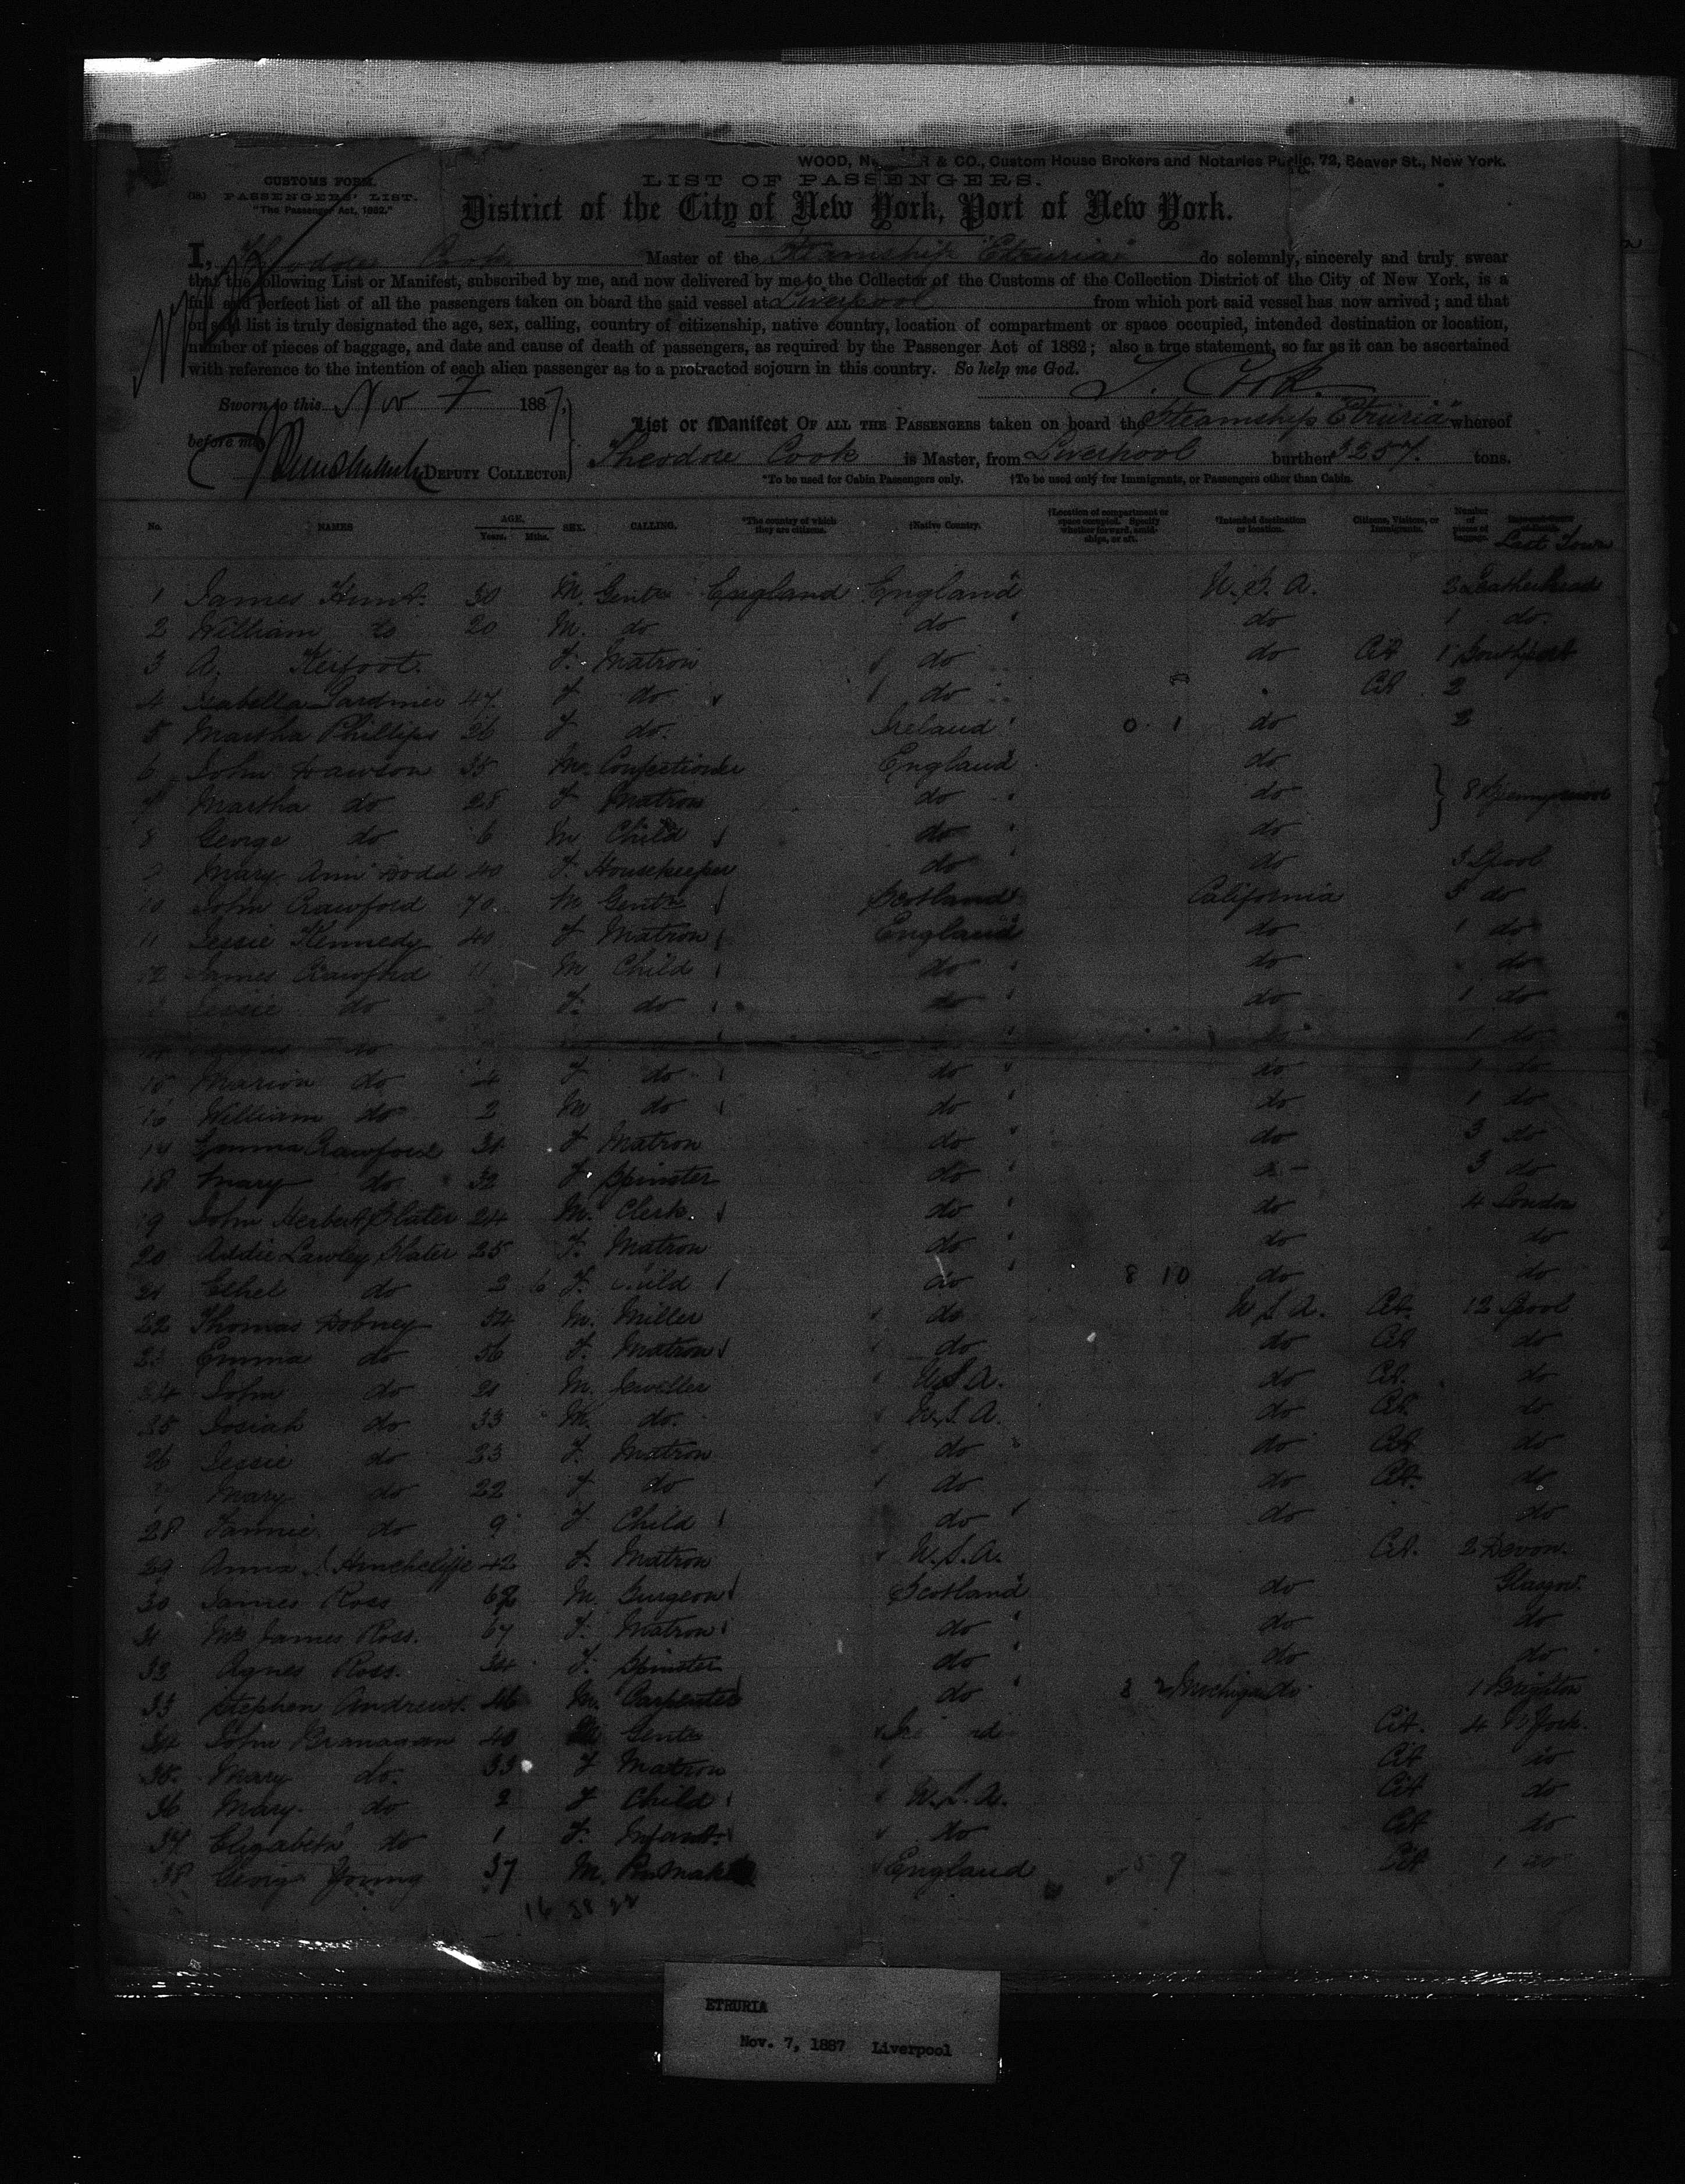 WOOD, & CO., Custom House Brokers and Notaries Public, 72, Beaver St., New York.
CUSTOMS FORM.
PASSENGERS' LIST.
"The Passenger Act, 1882."
LIST OF PASSENGERS.
District of the City of New York, Port of New York.
I, Theodore Cook Master of the Steamship "Etruria" do solemnly, sincerely and truly swear
that the following List or Manifest, subscribed by me, and now delivered by me to the Collector of the Customs of the Collection District of the City of New York, is a
full and perfect list of all the passengers taken on board the said vessel at Liverpool from which port said vessel has now arrived; and that
on said list is truly designated the age, sex, calling, country of citizenship, native country, location of compartment or space occupied, intended destination or location,
number of pieces of baggage, and date and cause of death of passengers, as required by the Passenger Act of 1882; also a true statement, so far as it can be ascertained
with reference to the intention of each alien passenger as to a protracted sojourn in this country. So help me God.
T. Cook
Sworn to this Nov 7 1887,
before me
DEPUTY COLLECTOR
List or Manifest OF ALL THE PASSENGERS taken on board the Steamship "Etruria" whereof
Theodore Cook is Master, from Liverpool burthen 3257. tons.
*To be used for Cabin Passengers only. †To be used only for Immigrants, or Passengers other than Cabin.
No. NAMES AGE, Years. Mths. SEX. CALLING. *The country of which they are citizens. †Native Country. †Location of compartment or space occupied. Specify whether forward, amidships, or aft. †Intended destination or location. Citizens, Visitors, or Immigrants. Number of pieces of baggage. Last Town
1 James Hunt. 30 M. Gentn England England U.S.A. 2 Leatherhead
2 William do 20 M. do do do 1 do.
3 A. Kerfoot. F. Matron do do Cit 1 Southport
4 Isabella Gardner 47 F do do Cit 2
5 Martha Phillips 26 F do. Ireland 0 1 do 2
6 John Dawson 35 M. Confectioner England do
7 Martha do 28 F Matron do do 8
8 George do 6 M Child do do
9 Mary Ann Dodd 40 F. Housekeeper do do 3 Lpool
10 John Crawford 70 M Gentn Scotland California 5 do
11 Jessie Kennedy 40 F Matron England do 1 do
12 James Crawford 11 M Child do do do
Jessie do F. do do do 1 do
14 do 1 do
15 Marion do 4 F do do do 1 do
16 William do 2 M do do do 1 do
17 Emma Crawford 34 F Matron do do 3 do
18 Mary do 32 F Spinster do 3 do
19 John Herbert Slater 24 M. Clerk do do 4 London
20 Addie Lawley Slater 25 F. Matron do do do
21 Ethel do 2 6 F. Child do 8 10 do do
22 Thomas Dobney 54 M. Miller do U.S.A. Cit. 12 Lpool
23 Emma do 56 F. Matron do do Cit do
24 John do 21 M. Jeweller U.S.A. do Cit. do
25 Josiah do 33 M. do. U.S.A. do Cit. do
26 Jessie do 23 F. Matron do do Cit do
Mary do 22 F do do do Cit. do
28 Fannie do 9 F Child do do do
29 Anna Hinchcliffe 42 F. Matron U.S.A. Cit. 2 Devon.
30 James Ross M. Surgeon Scotland do Glasgow.
31 Mrs James Ross. 67 F. Matron do do do
32 Agnes Ross. 34 F. Spinster do do do
33 Stephen Andrews. M. Carpenter do 3 2 Michigan 1 Brighton
34 John Branagan 40 M Gentn Cit. 4 N York.
35. Mary do. 33 F Matron Cit do
36 Mary do 2 F Child U.S.A. Cit do
37 Elizabeth do 1 F. Infant do Cit do
38 George Young 37 M. England 5 9 Cit 1 do
ETRURIA
Nov. 7, 1887 Liverpool